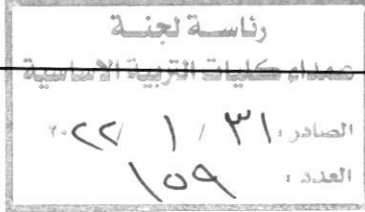 رئاسة لجنة
عمداء كليات التربية الاساسية
الصادر: ٣١ / ١ / ٢٠٢٢
العدد: ١٥٩